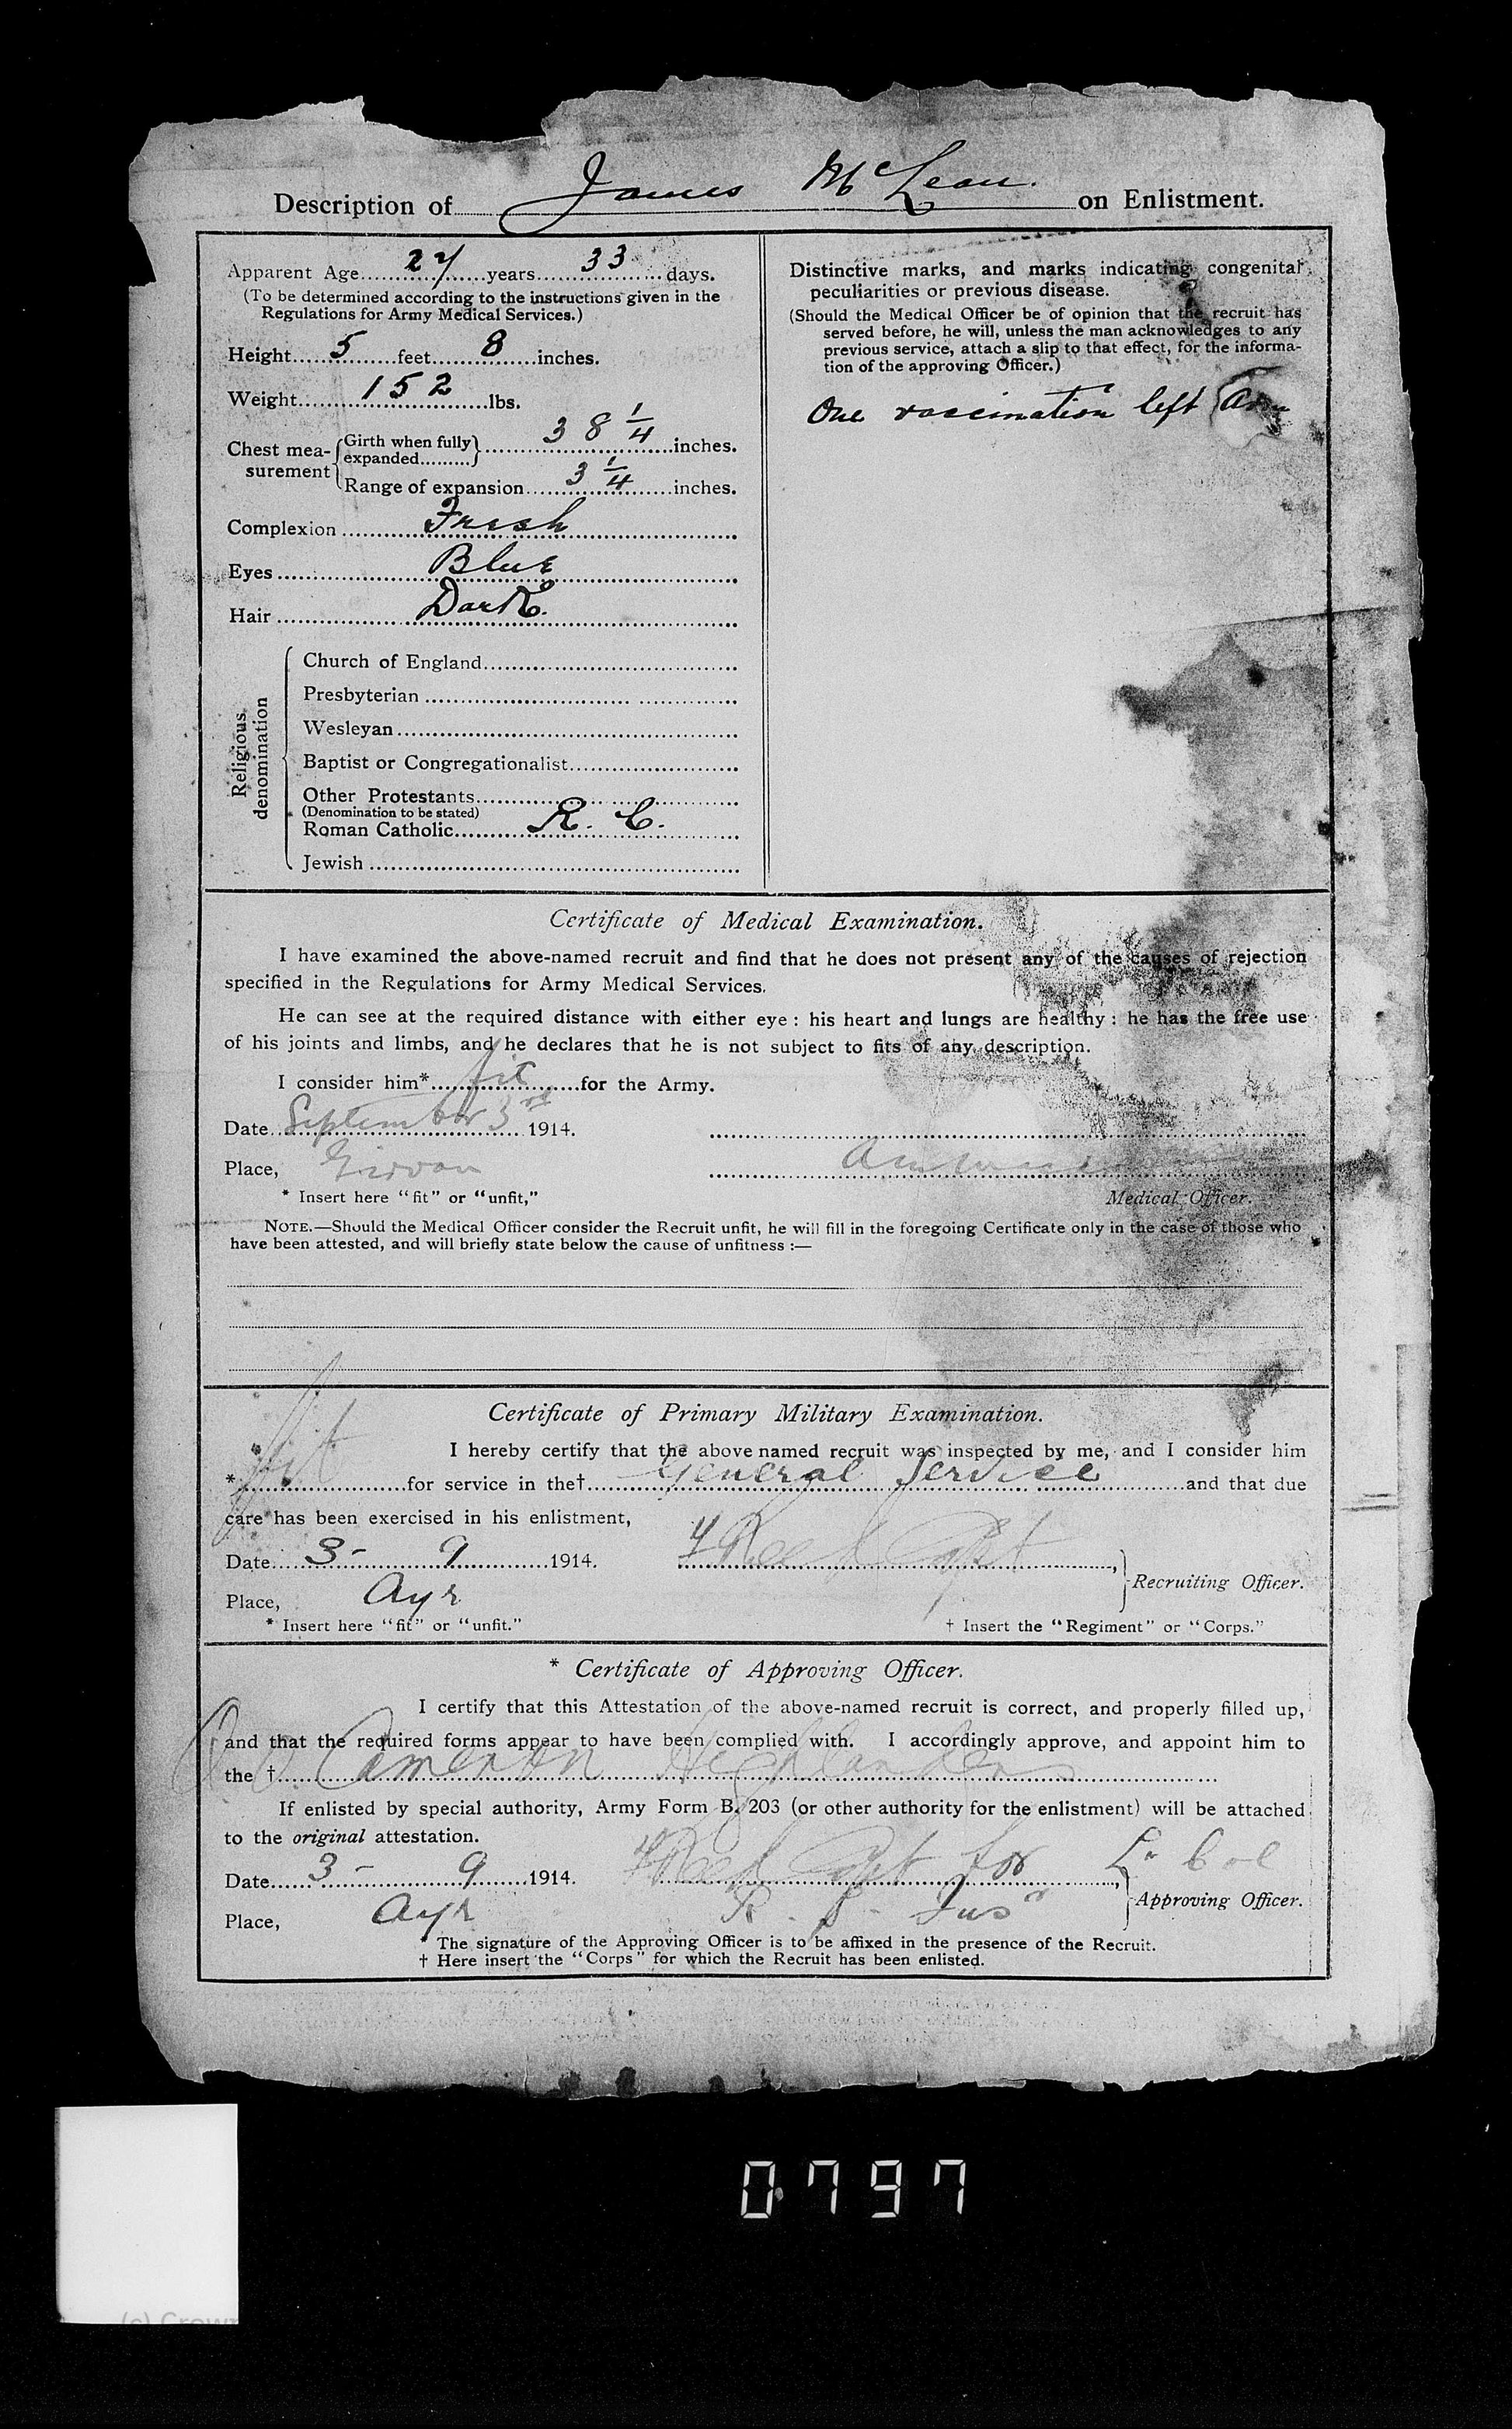 Description of James McLean. on Enlistment.
Apparent Age 27 years 33 days.
(To be determined according to the instructions given in the
Regulations for Army Medical Services.)
Height 5 feet 8 inches.
Weight 152 lbs.
Chest mea-surement { Girth when fully expanded 38 1/4 inches.
Range of expansion 3 1/4 inches.
Complexion Fresh
Eyes Blue
Hair Dark.
Religious denomination
Church of England
Presbyterian
Wesleyan
Baptist or Congregationalist
Other Protestants
(Denomination to be stated)
Roman Catholic R. C.
Jewish
Distinctive marks, and marks indicating congenital
peculiarities or previous disease.
(Should the Medical Officer be of opinion that the recruit has
served before, he will, unless the man acknowledges to any
previous service, attach a slip to that effect, for the informa-
tion of the approving Officer.)
One vaccination left arm
Certificate of Medical Examination.
I have examined the above-named recruit and find that he does not present any of the causes of rejection
specified in the Regulations for Army Medical Services.
He can see at the required distance with either eye : his heart and lungs are healthy : he has the free use
of his joints and limbs, and he declares that he is not subject to fits of any description.
I consider him* fit for the Army.
Date September 3rd 1914.
Place, Girvan
Medical Officer.
* Insert here "fit" or "unfit,"
NOTE.—Should the Medical Officer consider the Recruit unfit, he will fill in the foregoing Certificate only in the case of those who
have been attested, and will briefly state below the cause of unfitness :—
Certificate of Primary Military Examination.
I hereby certify that the above named recruit was inspected by me, and I consider him
* fit for service in the† General Service and that due
care has been exercised in his enlistment,
Date 3 - 9 1914.
Capt
Recruiting Officer.
Place, Ayr
* Insert here "fit" or "unfit."
† Insert the "Regiment" or "Corps."
* Certificate of Approving Officer.
I certify that this Attestation of the above-named recruit is correct, and properly filled up,
and that the required forms appear to have been complied with. I accordingly approve, and appoint him to
the † Cameron Highlanders
If enlisted by special authority, Army Form B. 203 (or other authority for the enlistment) will be attached
to the original attestation.
Date 3 - 9 1914.
Capt for Lt Col
Approving Officer.
Place, Ayr
R. S. Fusrs
* The signature of the Approving Officer is to be affixed in the presence of the Recruit.
† Here insert the "Corps" for which the Recruit has been enlisted.
0797